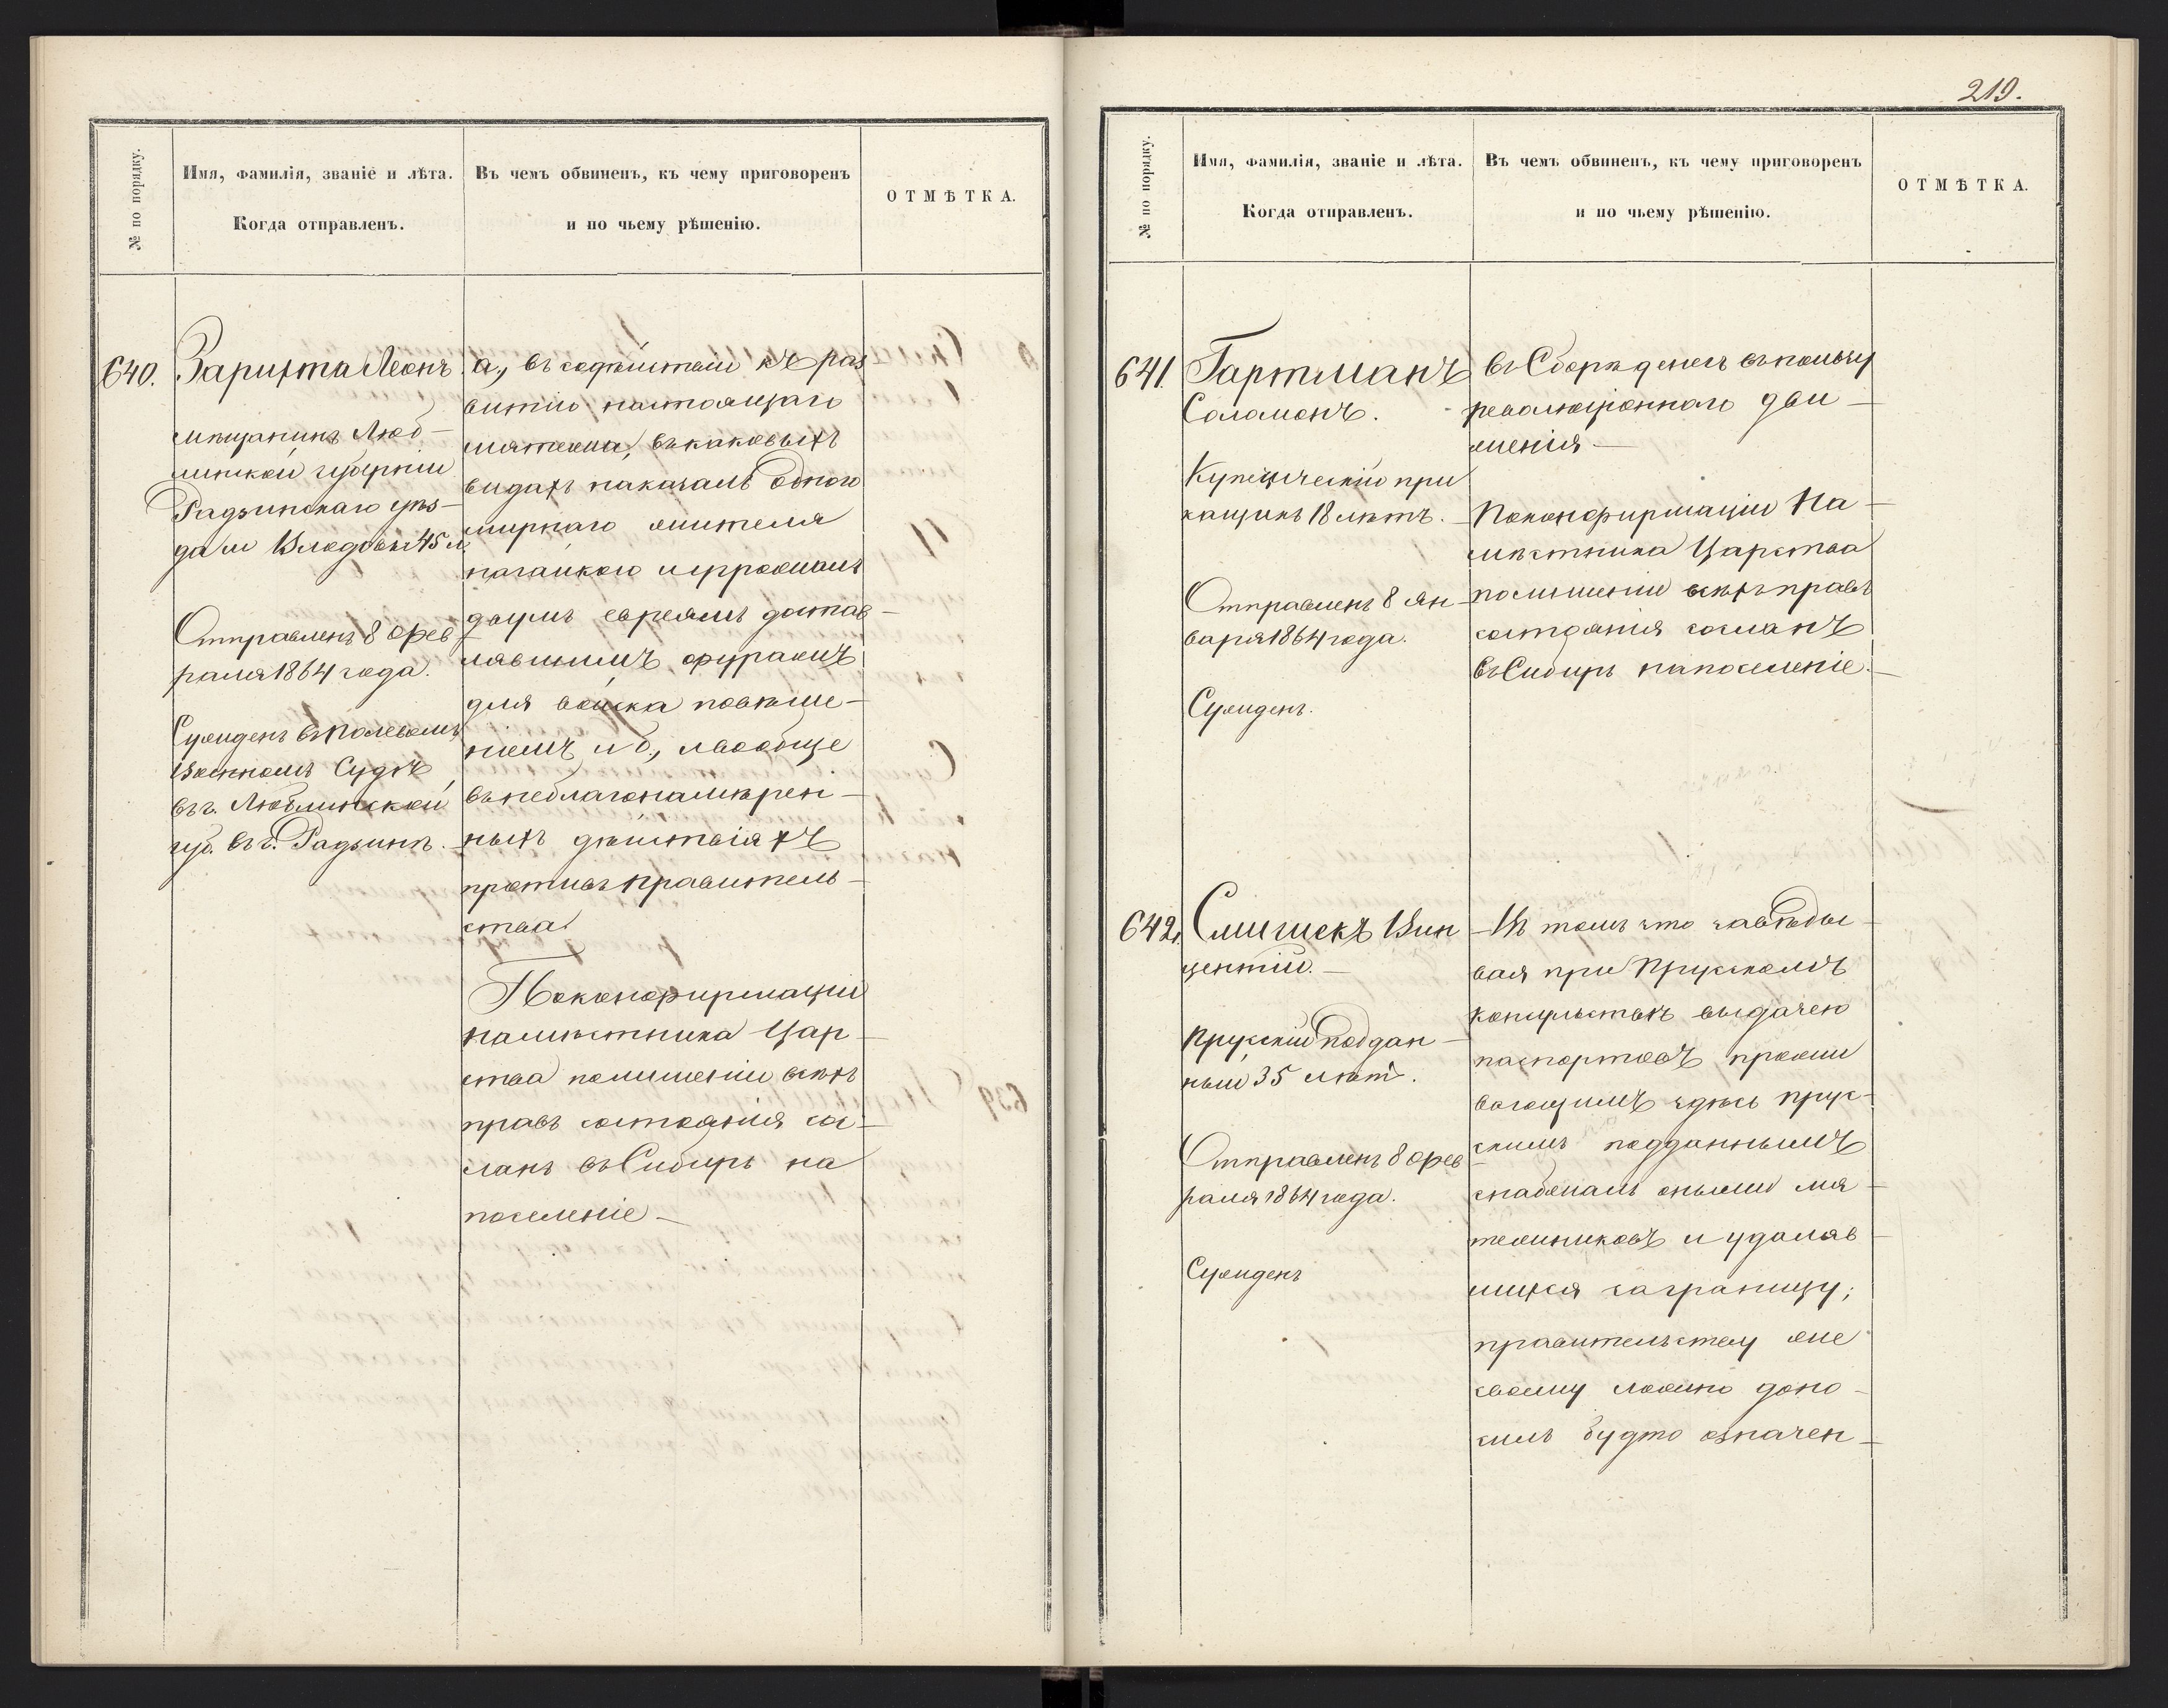 219.
№ по порядку.
Имя, фамилія, званіе и лѣта.
Когда отправленъ.
Въ чемъ обвиненъ, къ чему приговоренъ
и по чьему рѣшенію.
ОТМѢТКА.
640.
Зарихта Леонъ
мѣщанинъ Люб-
линской губерніи
Радзинскаго уѣз-
да и 45 л.
Отправленъ 8 фев
раля 1864 года.
Сужденъ въ Полевомъ
Военномъ Судѣ
въ г. Люблинской
губ. въ г. Радзинѣ.
а., въ содѣйствіи къ раз-
витію настоящаго
мятежа, въ каковыхъ
видахъ наказалъ одного
мирнаго жителя
нагайкою и угрожалъ
двумъ евреямъ достав-
лявшимъ фуражъ
для войска повѣше-
ніемъ и б., и вообще
въ неблагонамѣрен-
ныхъ дѣйствіяхъ
противъ правитель-
ства.
По конфирмаціи
намѣстника Цар-
ства по лишеніи всѣхъ
правъ состоянія со-
сланъ въ Сибирь на
поселеніе —
№ по порядку.
Имя, фамилія, званіе и лѣта.
Когда отправленъ.
Въ чемъ обвиненъ, къ чему приговоренъ
и по чьему рѣшенію.
ОТМѢТКА.
641.
Гартманъ
Соломонъ.
Купеческій при
кащикъ 18 лѣтъ.
Отправленъ 8 ян-
варя 1864 года.
Сужденъ.
въ Сборѣ денегъ въ пользу
революціоннаго дви-
женія —
По конфирмаціи На-
мѣстника Царства
по лишеніи всѣхъ правъ
состоянія сосланъ
въ Сибирь на поселеніе. —
642.
Смигискъ Вин
центій. —
Прускій поддан-
ный 35 лѣтъ.
Отправленъ 8 фев-
раля 1864 года.
Сужденъ
— Въ томъ что завѣды-
вая при Прусскомъ
консульствѣ выдачею
паспортовъ прожи
вающимъ здѣсь прус-
скимъ подданнымъ
снабжалъ оными мя-
тежниковъ и удаляв-
шихся заграницу;
правительству же
своему ложно доно-
силъ будто означен-